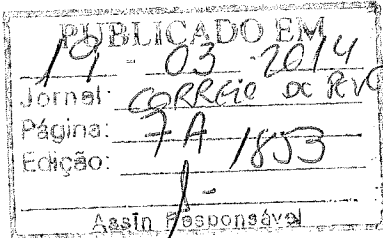 PUBLICADO EM
19 - 03 - 2014
Jornal: CORREIO DO POVO
Página: 7A
Edição: 1853
Assin Responsável